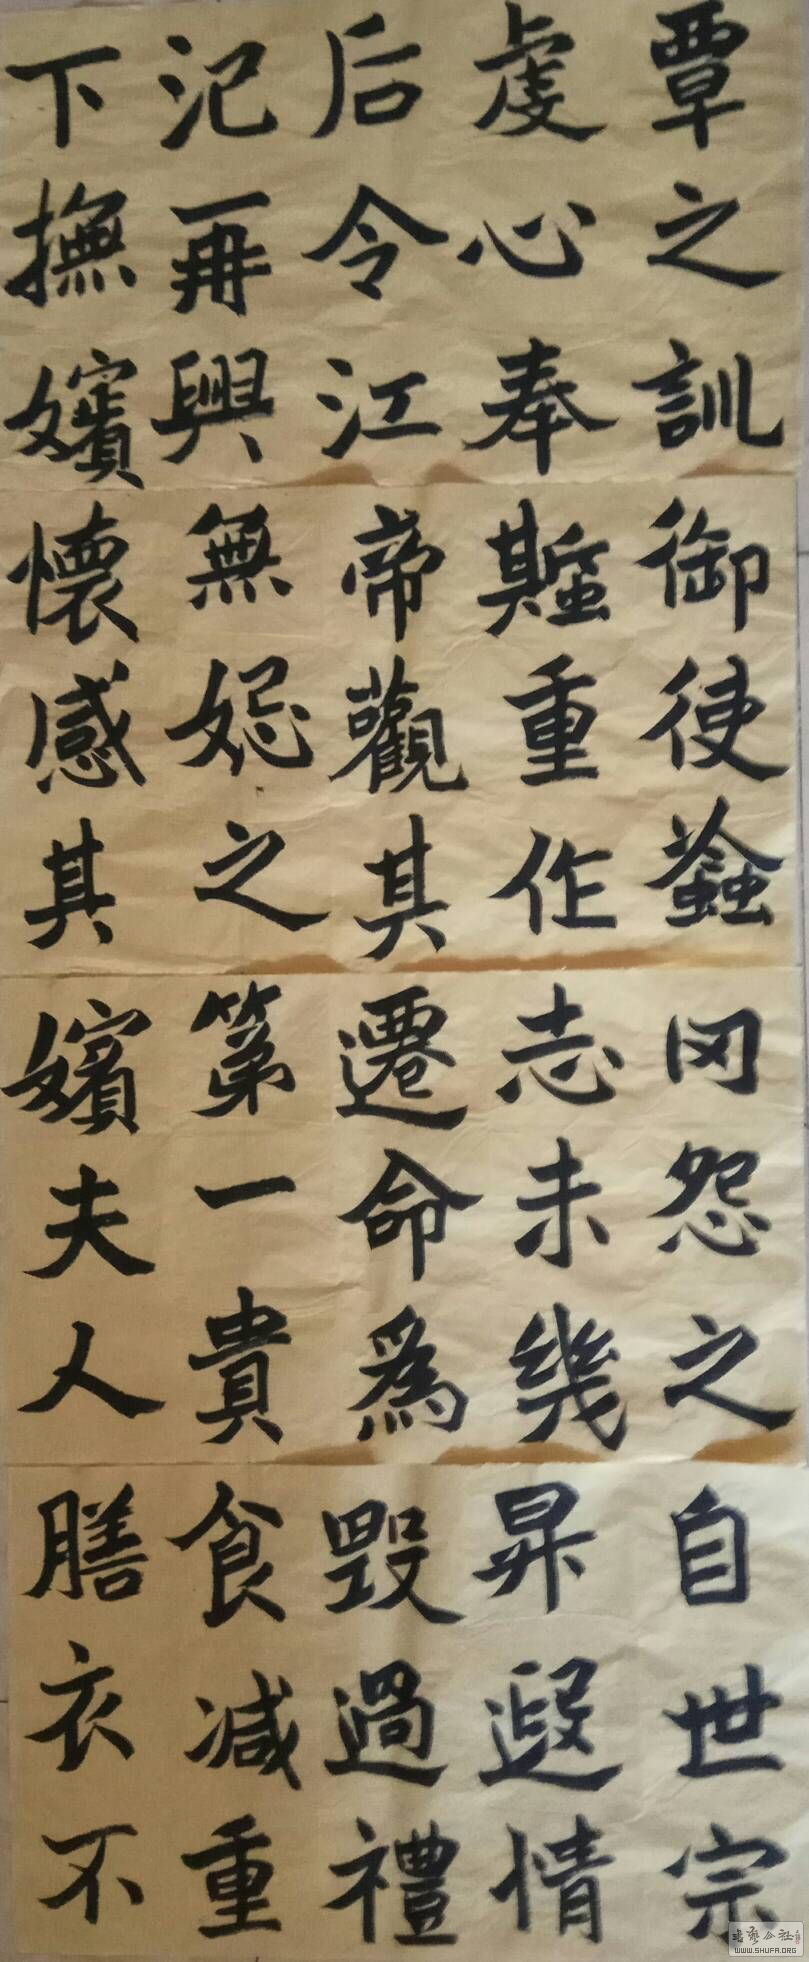 覃之訓
虔心奉
后令江
汜再興
下撫嬪
御使螽
蟴重作
帝觀其
無之
懷感其
冈怨之
志未幾
遷命為
第一貴
嬪夫人
自世宗
昇遐情
毀過禮
食減重
膳衣不
书艺公社
WWW.SHUFA.ORG